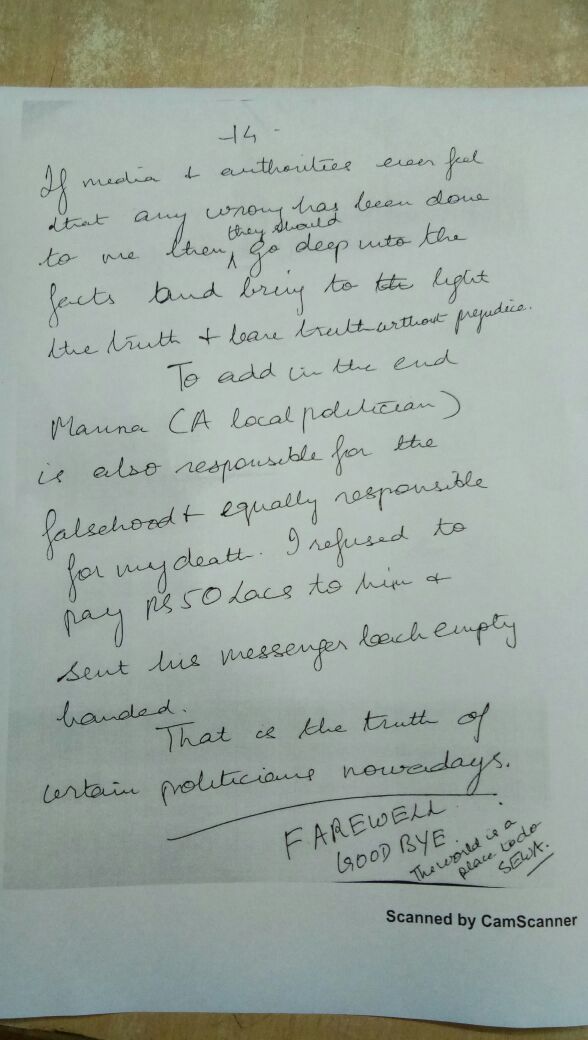 -14-
If media & authorities ever feel
that any wrong has been done
to me then they should go deep into the
facts and bring to the light
the truth & bare truth without prejudice.
To add in the end
Manna (A local politician)
is also responsible for the
falsehood & equally responsible
for my death. I refused to
pay RS 50 Lacs to him &
sent his messenger back empty
handed.
That is the truth of
certain politicians nowadays.
FAREWELL
GOOD BYE
The world is a
place to do
SEWA.
Scanned by CamScanner